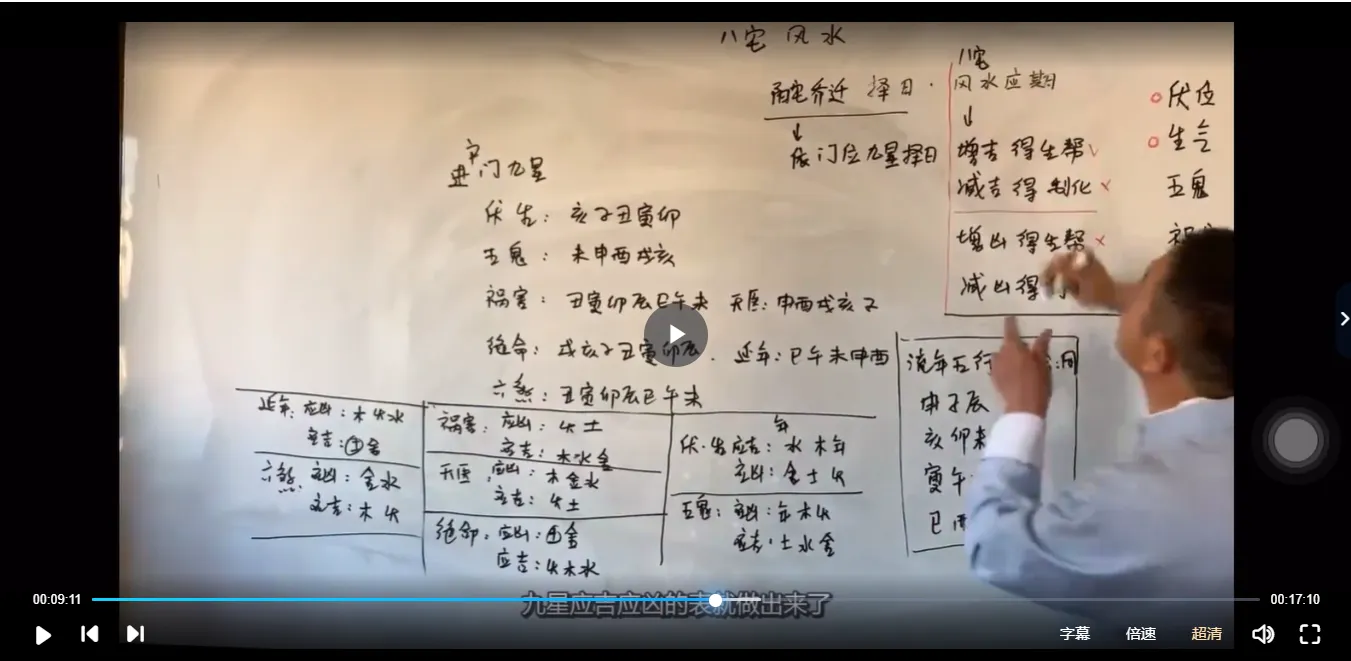 八宅 风水
阳宅乔迁 择日.
↓
依门位九星择日
八宅
风水应期
↓
增吉得生帮✓
减吉得制化×
增凶得生帮×
减凶得
伏位
生气
五鬼
宅
进门九星
伏 生: 亥子丑寅卯
五鬼: 未申酉戌亥
祸害: 丑寅卯辰巳午未 天医: 申酉戌亥子
绝命: 戌亥子丑寅卯辰. 延年: 巳午未申酉
六煞: 丑寅卯辰巳午未
延年: 应凶: 木火水
应吉: 土金
六煞. 应凶: 金水
应吉: 木火
祸害: 应凶: 火土
应吉: 木水金
天医. 应凶: 木金水
应吉: 火土
绝命. 应凶: 土金
应吉: 火木水
年
伏.生应吉: 水木年
应凶: 金土火
五鬼: 应凶: 年木火
应吉: 土水金
流年五行
申子辰
亥卯未
寅午
巳酉
九星应吉应凶的表就做出来了
00:09:11
00:17:10
字幕 倍速 超清